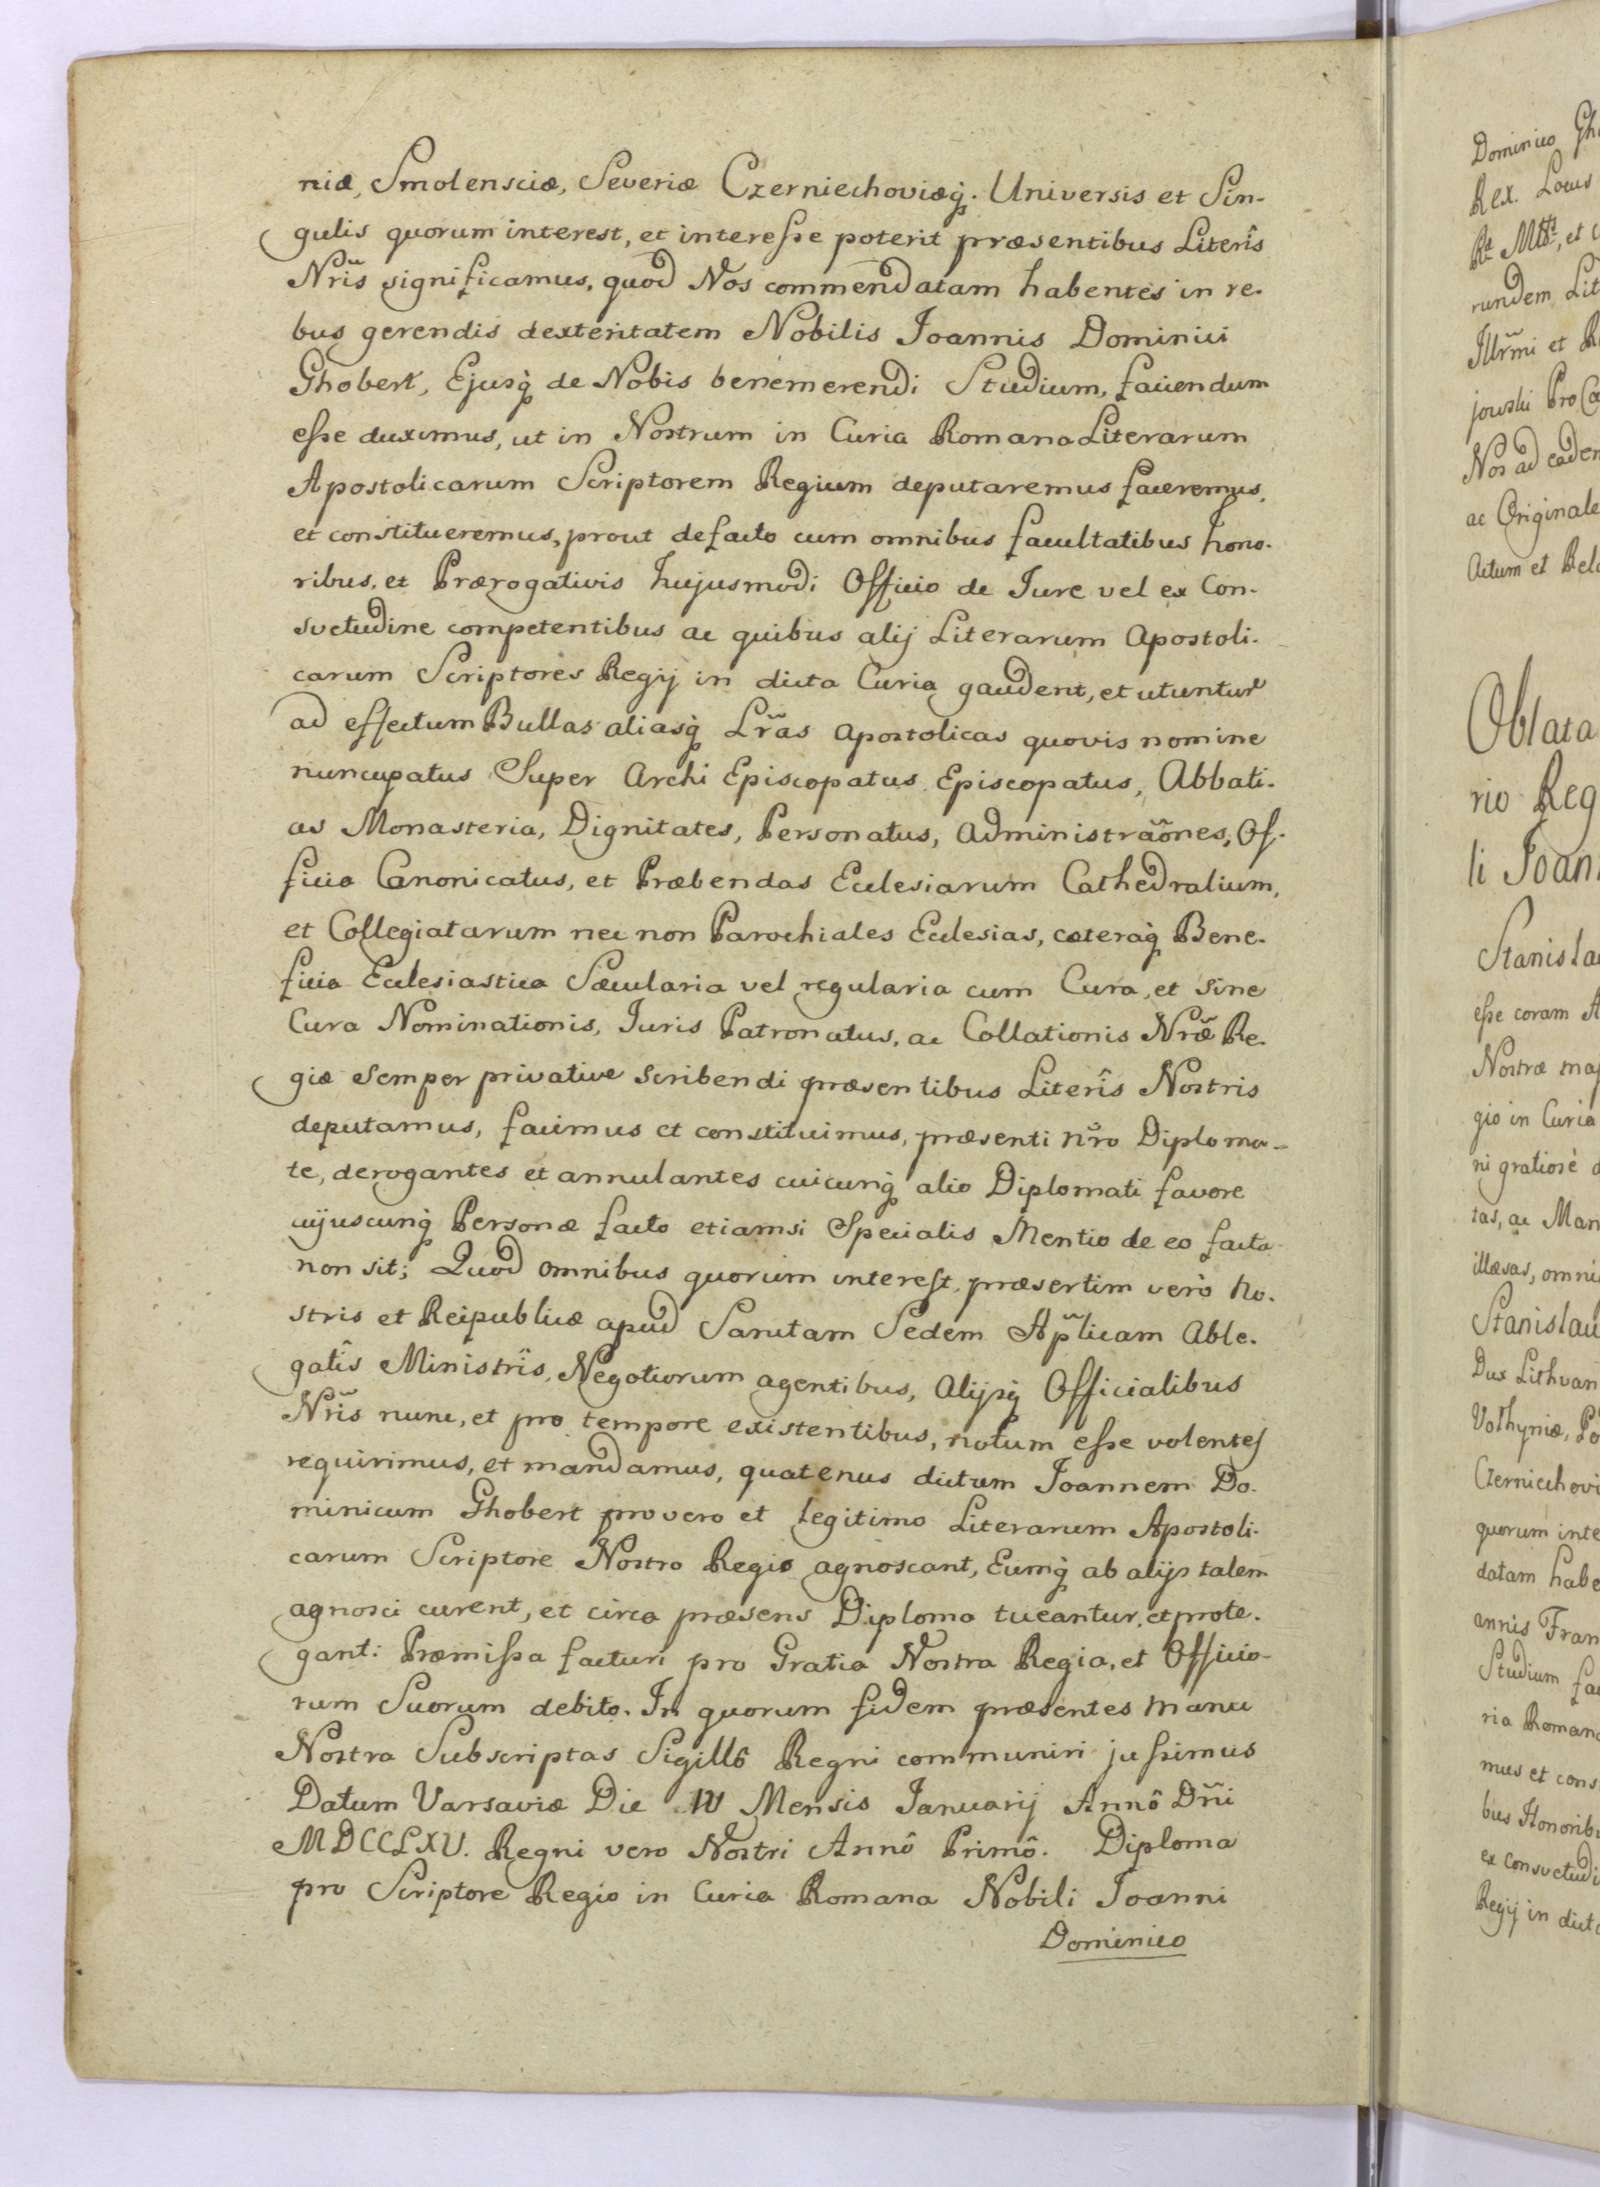 niæ, Smolensciæ, Severiæ Czerniechoviæq́. Universis et Sin-
gulis quorum interest, et interesse poterit præsentibus Literîs
Nr̃is significamus, quod Nos commendatam habentes in re-
bus gerendis dexteritatem Nobilis Joannis Dominici
Ghobert, Ejusq́ de Nobis benemerendi Studium, favendum
esse duximus, ut in Nostrum in Curia Romana Literarum
Apostolicarum Scriptorem Regium deputaremus faceremus,
et constitueremus, prout defacto cum omnibus facultatibus hono-
ribus, et Prærogativis hujusmodi Officio de Jure vel ex Con-
svetudine competentibus ac quibus alij Literarum Apostoli-
carum Scriptores Regij in dicta Curia gaudent, et utuntur
ad effectum Bullas aliasq́ Lr̃as Apostolicas quovis nomine
nuncupatus Super Archi Episcopatus Episcopatus, Abbati-
as Monasteria, Dignitates, Personatus, Administrãones, Of-
ficia Canonicatus, et Præbendas Ecclesiarum Cathedralium,
et Collegiatarum nec non Parochiales Ecclesias, cæteraq́ Bene-
ficia Ecclesiastica Sæcularia vel regularia cum Cura, et sine
Cura Nominationis, Juris Patronatus, ac Collationis Nr̃æ Re-
giæ semper privative scribendi præsentibus Literîs Nostris
deputamus, facimus et constituimus, præsenti nr̃o Diploma-
te, derogantes et annulantes cuicunq́ alio Diplomati favore
cujuscunq́ Personæ facto etiamsi Specialis Mentio de eo facta
non sit; Quod omnibus quorum interest, præsertim verò no-
stris et Reipublicæ apud Sanctam Sedem Ap̃licam Able-
gatîs Ministrîs, Negotiorum agentibus, Alijsq́ Officialibus
Nr̃is nunc, et pro tempore existentibus, notum esse volentes
requirimus, et mandamus, quatenus dictum Joannem Do-
minicum Ghobert pro vero et legitimo Literarum Apostoli-
carum Scriptore Nostro Regio agnoscant, Eumq́ ab alijs talem
agnosci curent, et circa præsens Diploma tueantur, et prote-
gant: Præmissa facturi pro Gratia Nostra Regia, et Officio-
rum Suorum debito. In quorum fidem præsentes manu
Nostra Subscriptas Sigillô Regni communiri jussimus
Datum Varsaviæ Die IV Mensis Januarij Annô Dñi
MDCCLXV. Regni vero Nostri Annô Primô. Diploma
pro Scriptore Regio in Curia Romana Nobili Joanni
Dominico
Dominico
Rex. Locus
rundem
Illr̃mi et
jowski Pro
Nos ad eadem
ac Originale
Actum et
Oblata
rio Reg
li Joan
Stanisla
esse coram
Nostræ maj
gio in Curia
ni gratiose
tas, ac Man
illæsas, omni
Stanislau
Dux Lithvan
Volhyniæ,
Czerniechovi
quorum inte
datam habe
annis Fran
Studium fa
ria Romana
mus et cons
bus Honorib
ex consvetudi
Regij in dicta